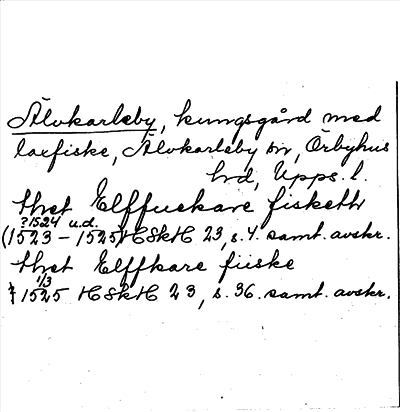 Älvkarleby, kungsgård med
laxfiske, Älvkarleby sn, Örbyhus
hd, Upps. l.
thet Elffuekare fiskett
?1524 u.d.
(1523 – 1525) HSkH 23, s. 4. samt. avskr.
thet Elffkare fiiske
1/3
1525 HSkH 23, s. 36. samt. avskr.